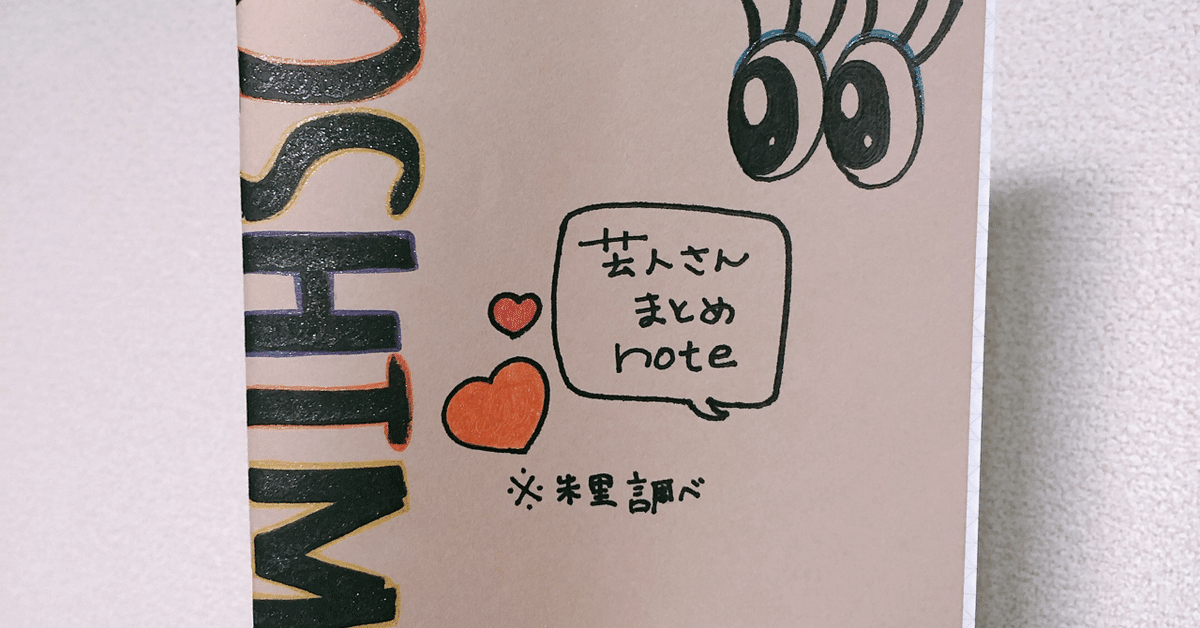 OSHIM
芸人さん
まとめ
note
※朱里調べ